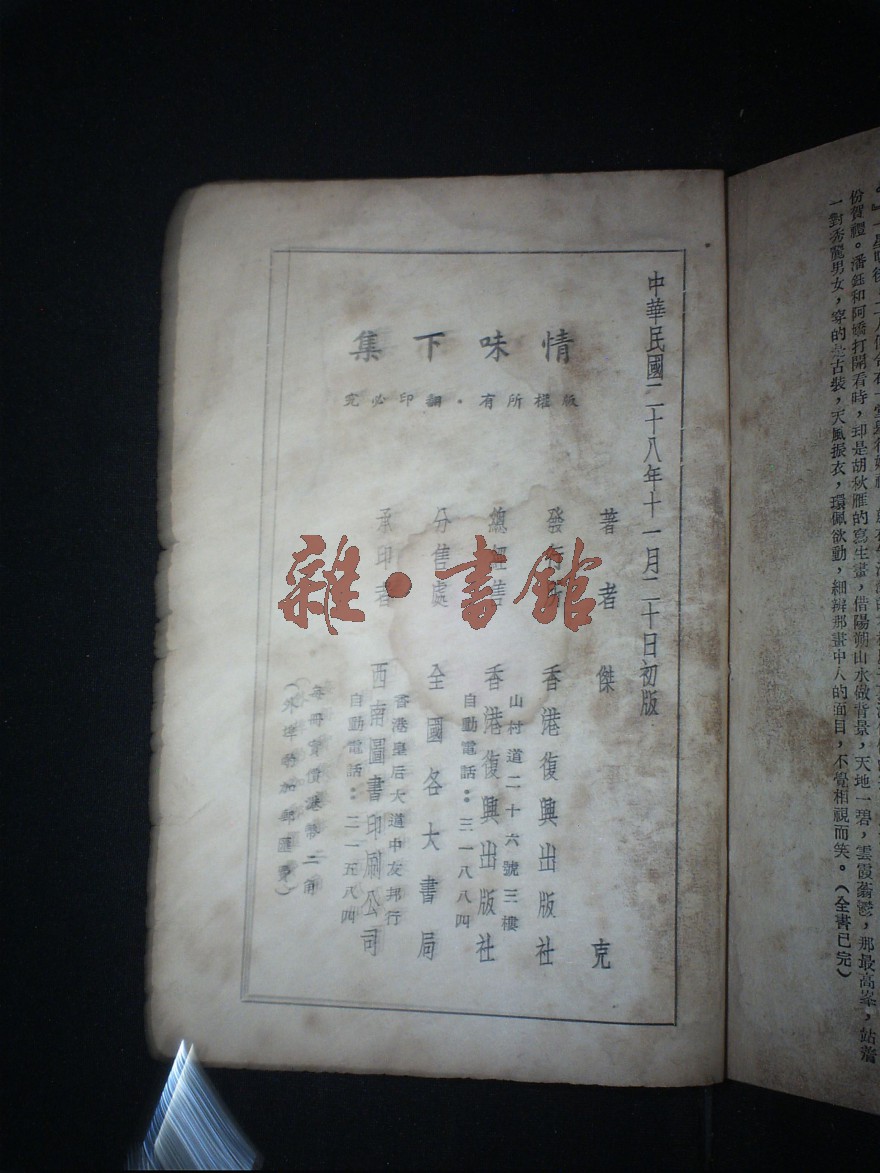 一對秀麗男女，穿的是古裝，天風振衣，環佩欲動，細辨那畫中人的面目，不覺相視而笑。（全書已完）
份賀禮。潘鈺和阿嬌打開看時，却是胡秋雁的寫生畫，借陽朔山水做背景，天地一碧，雲霞蓊鬱，那最高峯，站着
中華民國二十八年十一月二十日初版
情味下集
版權所有·翻印必究
著者 傑克
發行所 香港復興出版社
山村道二十六號三樓
總經售 香港復興出版社
自動電話：三一八八四
分售處 全國各大書局
香港皇后大道中友邦行
承印者 西南圖書印刷公司
自動電話：二一五八四
每冊實價港幣二角
雜·書館